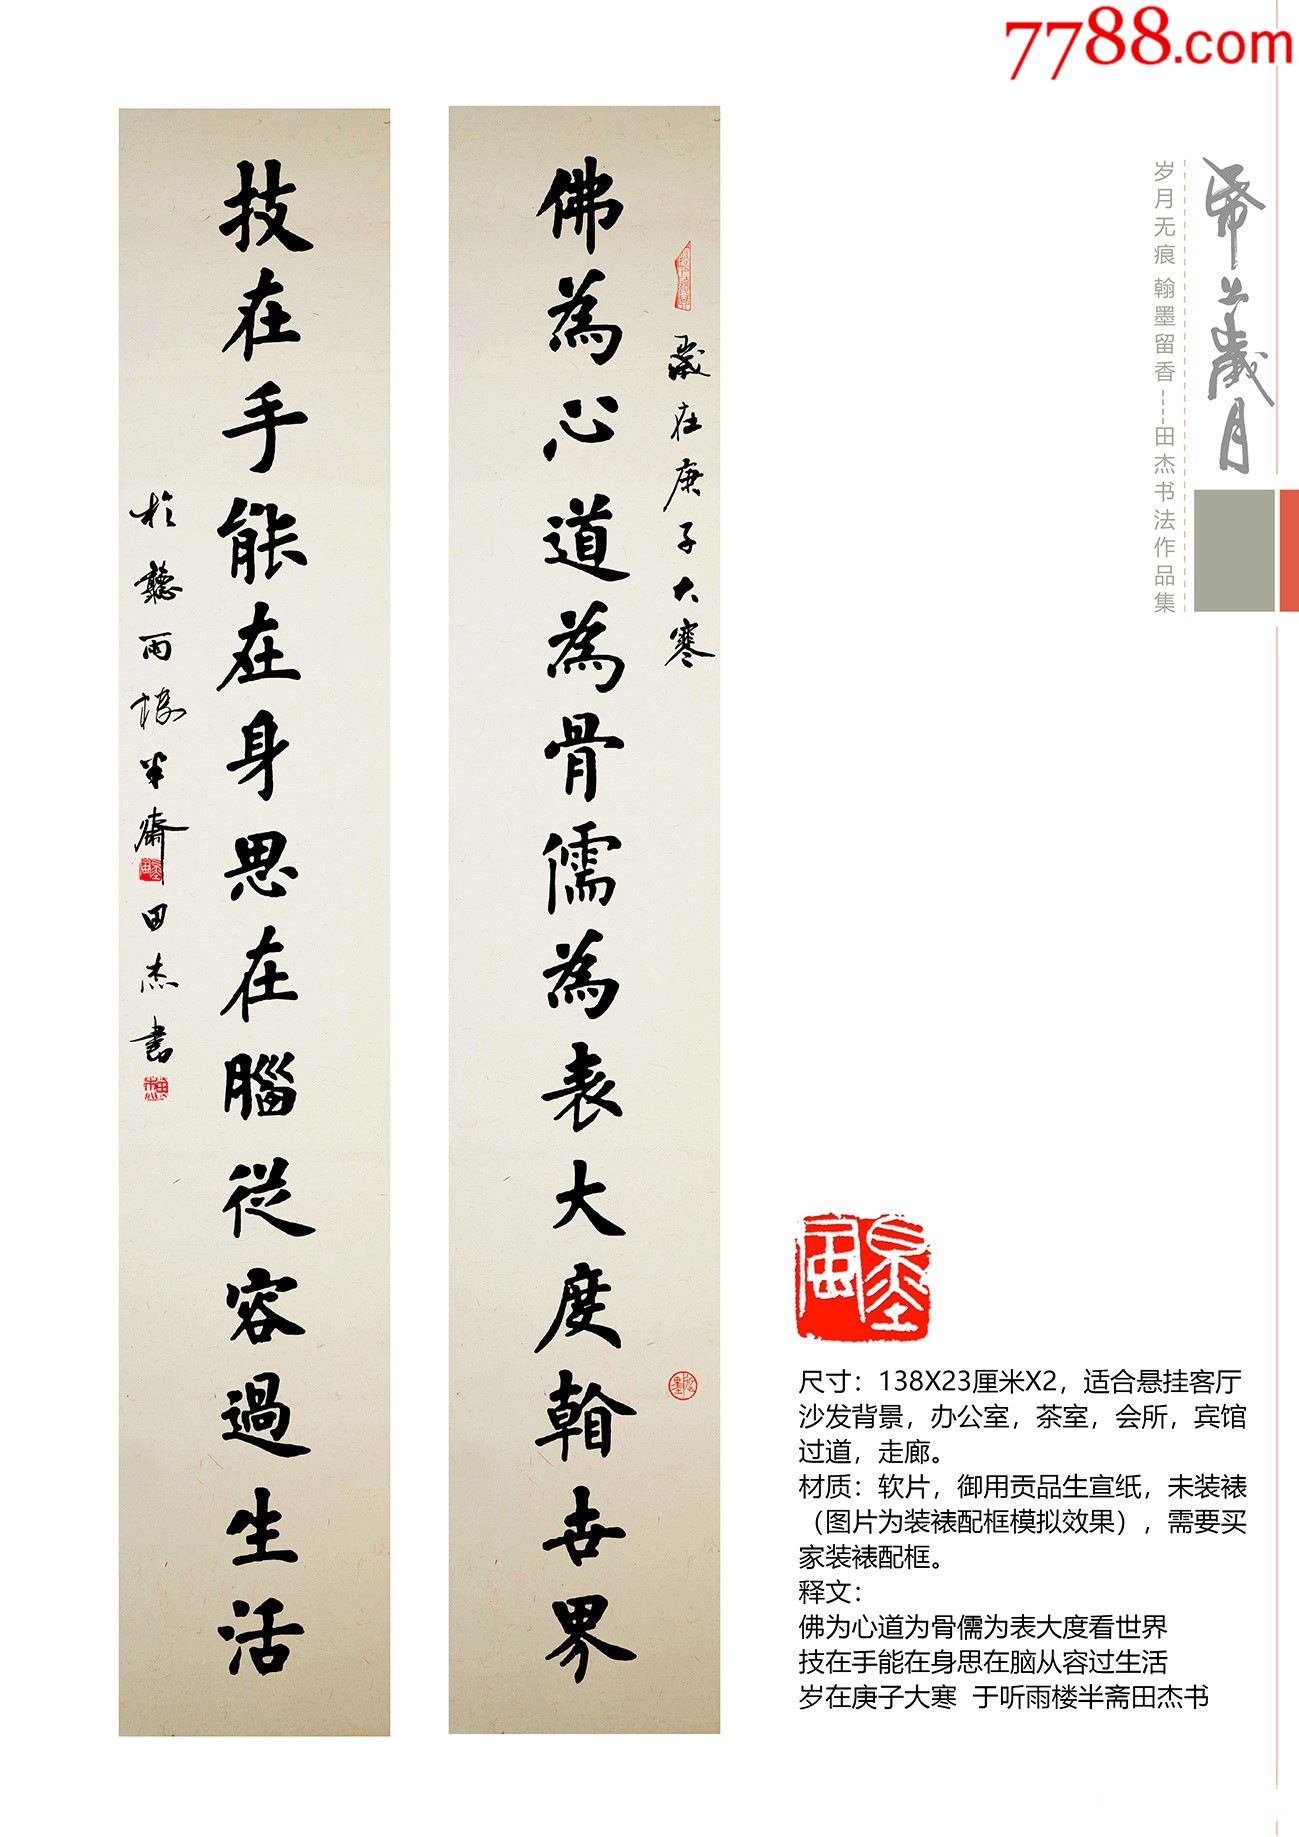 7788.com
岁月无痕 翰墨留香----田杰书法作品集
歲月
歲在庚子大寒
佛為心道為骨儒為表大度翰世界
技在手能在身思在腦從容過生活
於聽雨樓半齋田杰書
尺寸：138X23厘米X2，适合悬挂客厅
沙发背景，办公室，茶室，会所，宾馆
过道，走廊。
材质：软片，御用贡品生宣纸，未装裱
（图片为装裱配框模拟效果），需要买
家装裱配框。
释文：
佛为心道为骨儒为表大度看世界
技在手能在身思在脑从容过生活
岁在庚子大寒 于听雨楼半斋田杰书